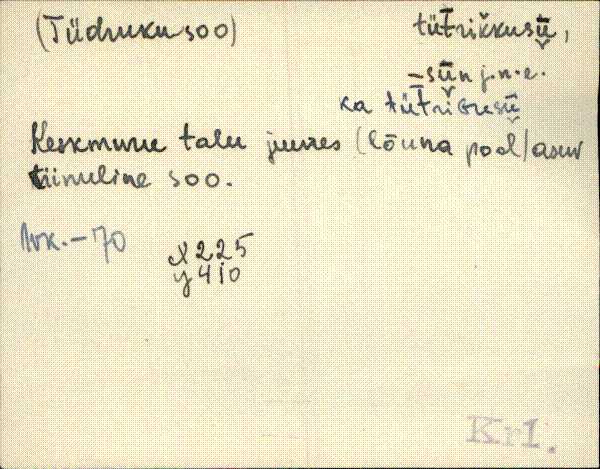 (Tüdruku soo) tütrikkusü̬,
-sü̬n j.n.e.
ka tütrikusü̬
Keskmuru talu juures (lõuna pool) asuv
tiinuline soo.
Wk. - 70
x 225
y 410
Krl.